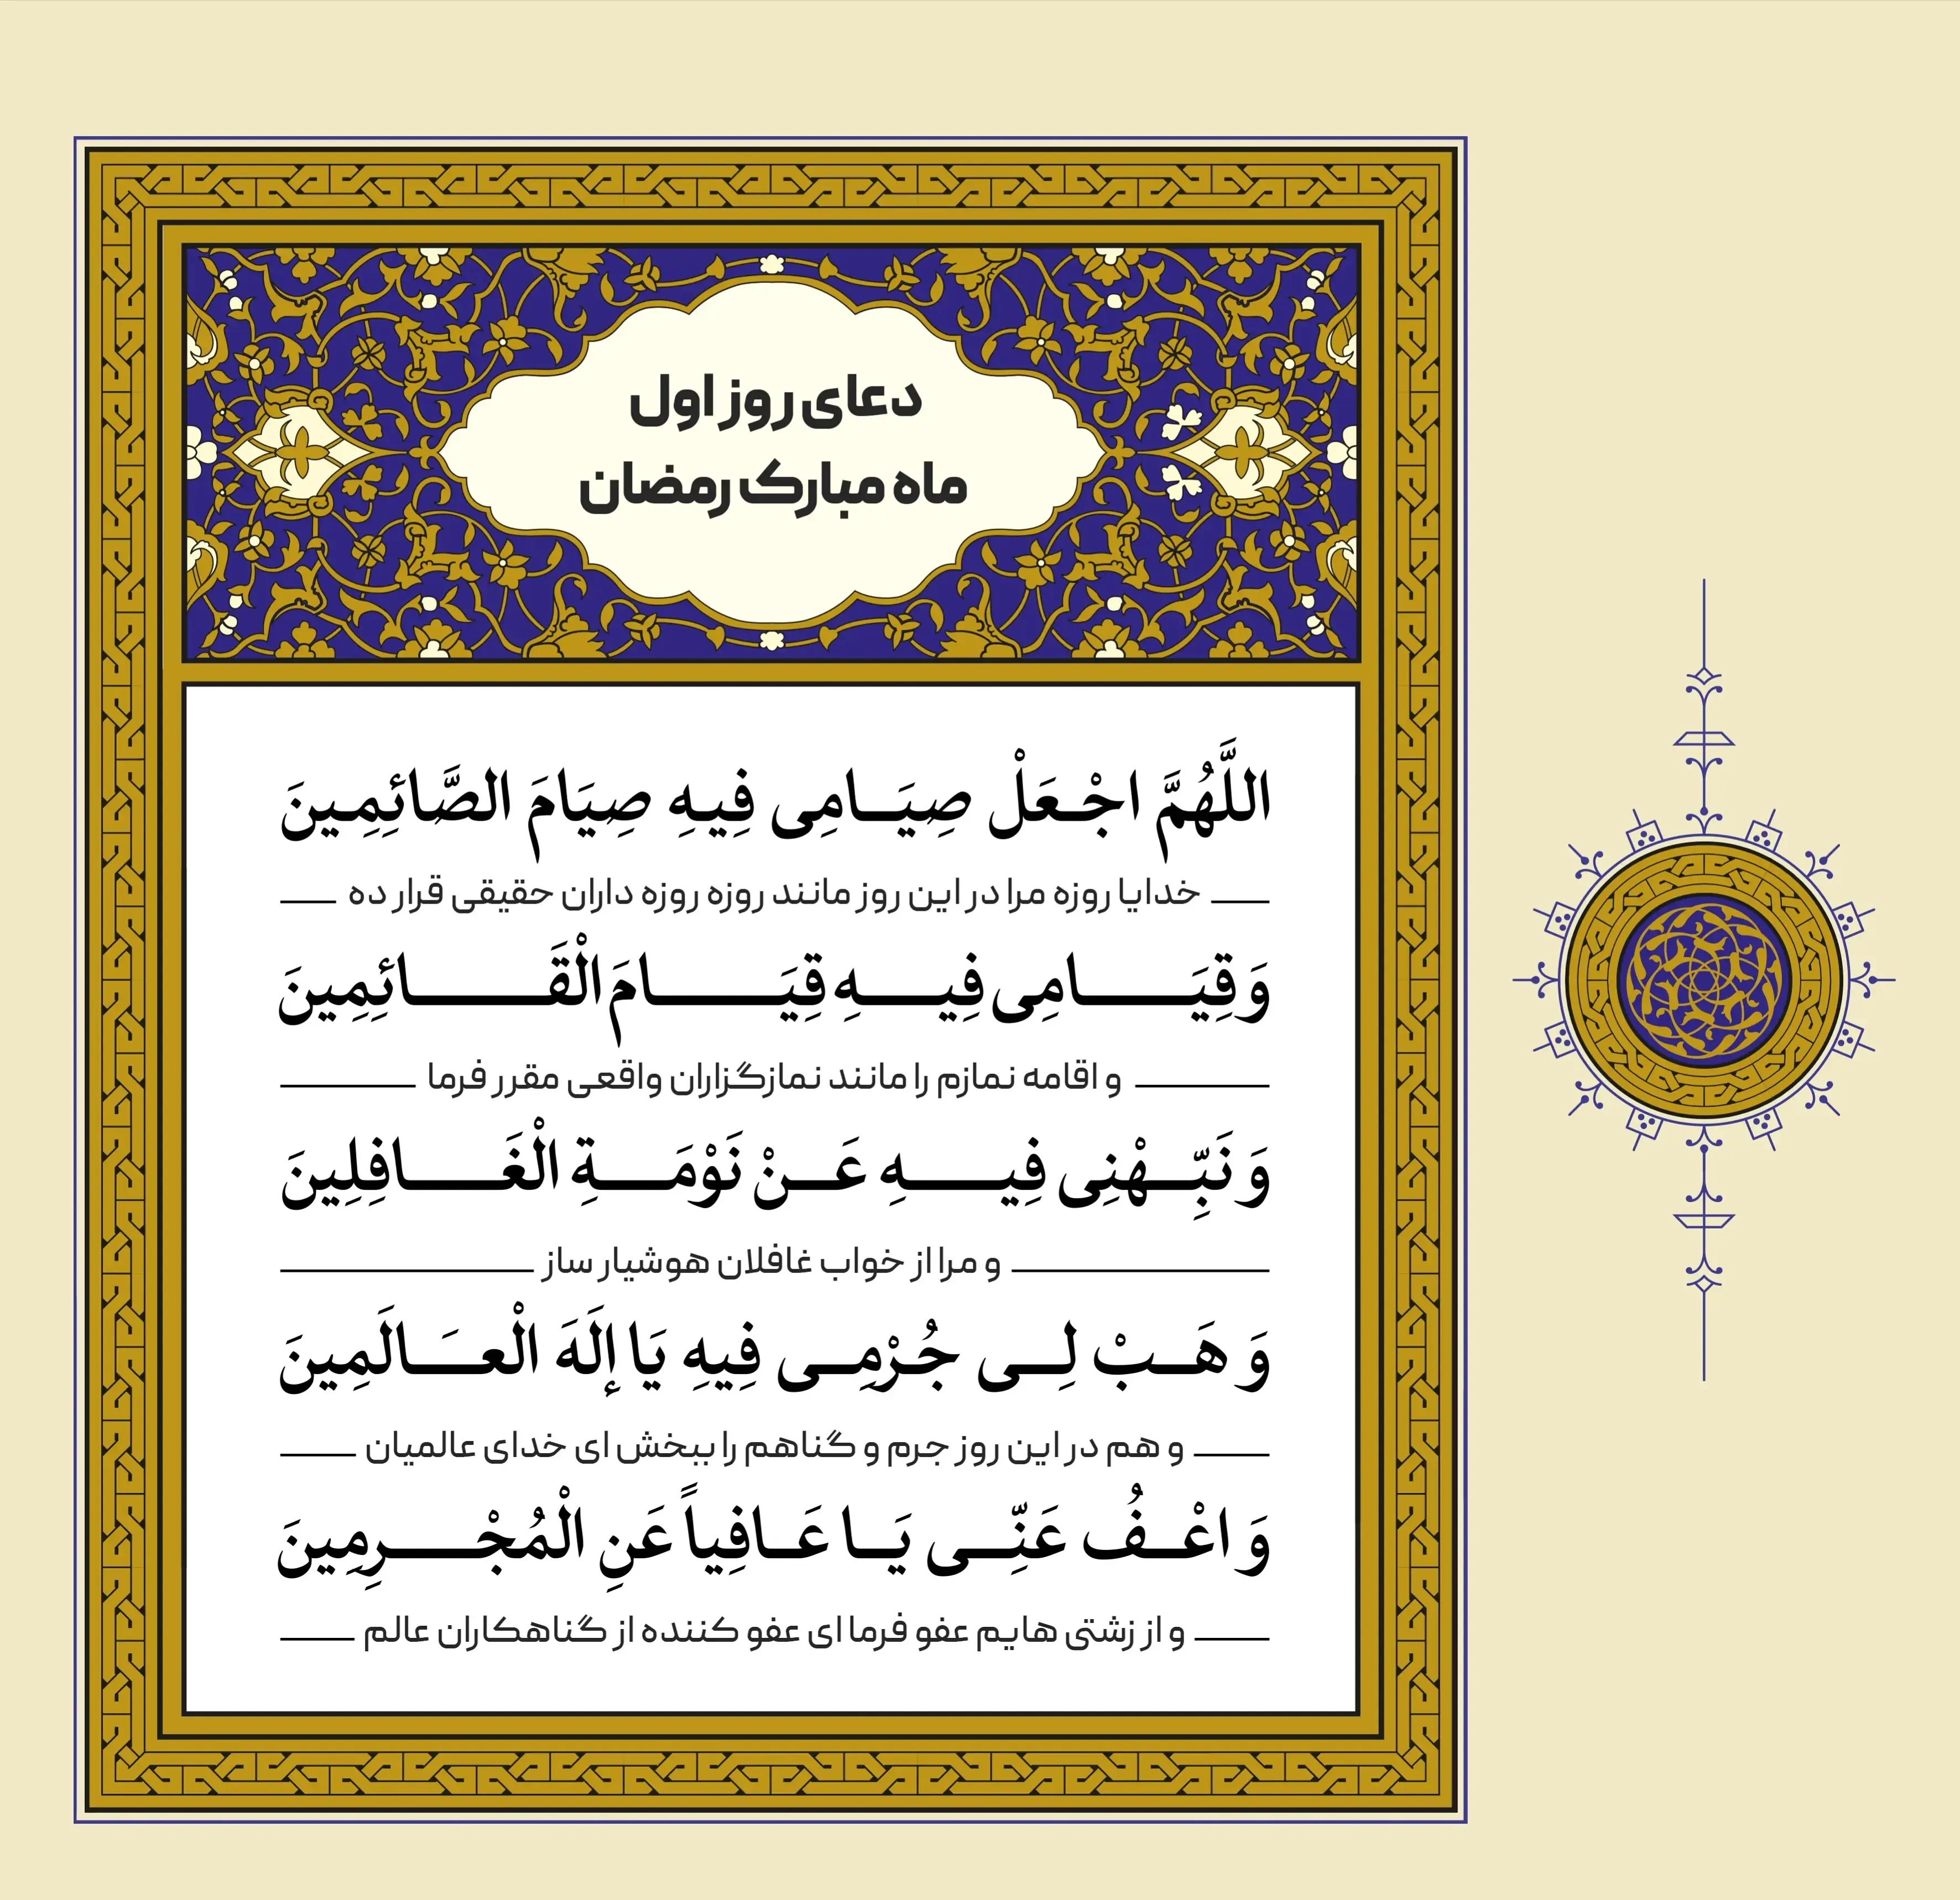 دعای روز اول
ماه مبارک رمضان
اللَّهُمَّ اجْعَلْ صِيَامِی فِيهِ صِيَامَ الصَّائِمِينَ
خدایا روزه مرا در این روز مانند روزه روزه داران حقیقی قرار ده
وَ قِيَامِی فِيهِ قِيَامَ الْقَائِمِينَ
و اقامه نمازم را مانند نمازگزاران واقعی مقرر فرما
وَ نَبِّهْنِی فِيهِ عَنْ نَوْمَةِ الْغَافِلِينَ
و مرا از خواب غافلان هوشیار ساز
وَ هَبْ لِی جُرْمِی فِيهِ يَا إِلَهَ الْعَالَمِينَ
و هم در این روز جرم و گناهم را ببخش ای خدای عالمیان
وَ اعْفُ عَنِّی يَا عَافِياً عَنِ الْمُجْرِمِينَ
و از زشتی هایم عفو فرما ای عفو کننده از گناهکاران عالم